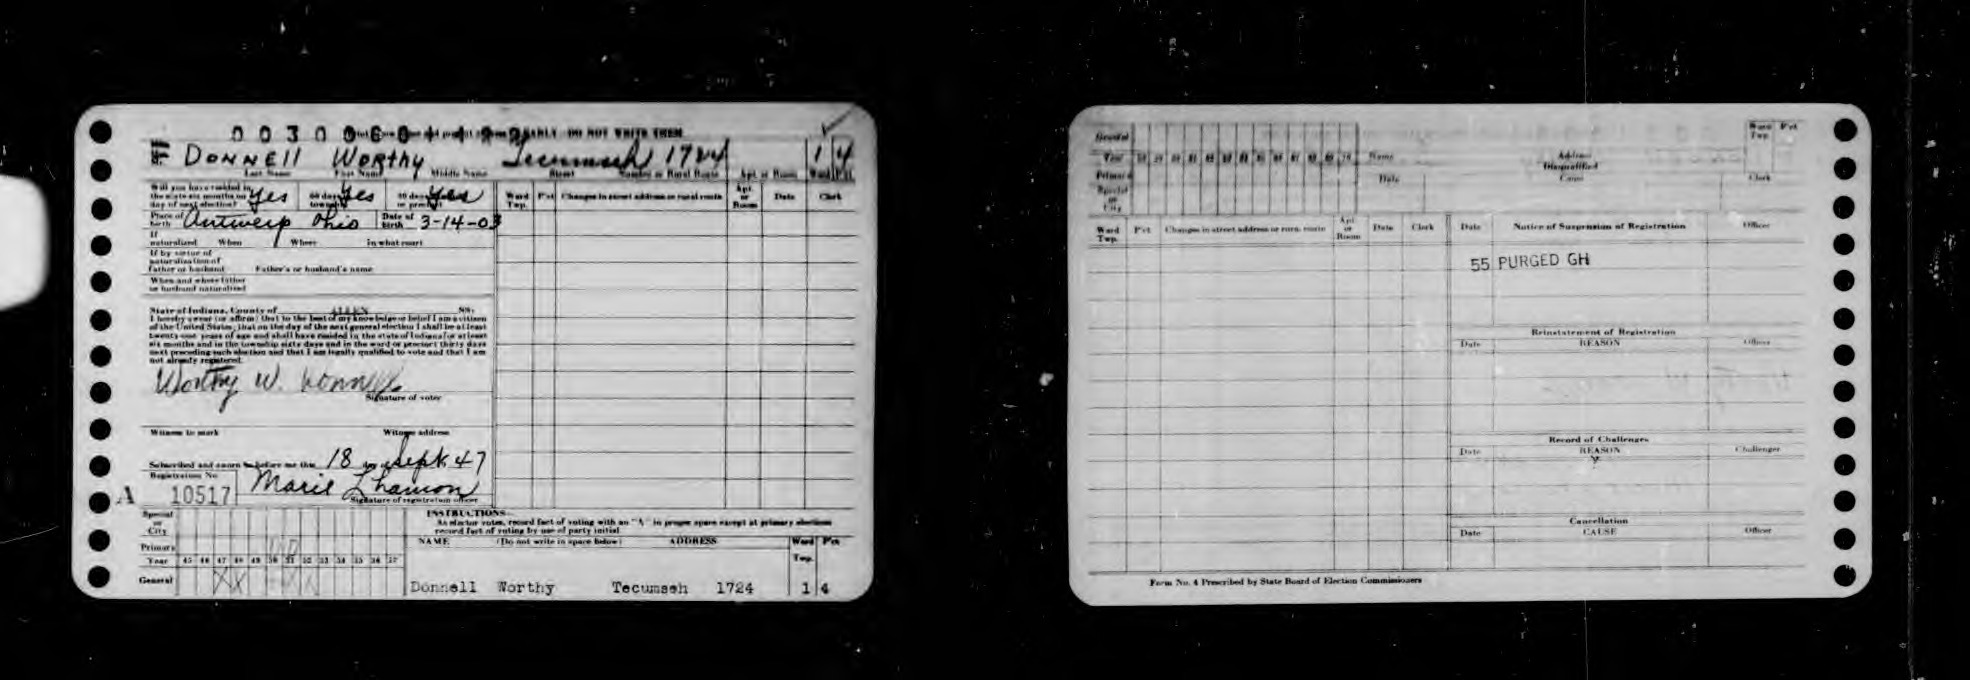 DONNELL Worthy Tecumseh 1724 1 4
Last Name First Name Middle Name Street Number or Rural Route Apt. or Room Ward Pct.
Will you have resided in the state six months on day of next election? Yes 60 days township Yes 30 days or precinct Yes
Place of birth Antwerp Ohio Date of birth 3-14-03
If naturalized When Where In what court
If by virtue of naturalization of father or husband Father's or husband's name
When and where father or husband naturalized
Ward Twp. Pct Changes in street address or rural route Apt. or Room Date Clerk
State of Indiana, County of ALLEN SS:
I hereby swear (or affirm) that to the best of my knowledge or belief I am a citizen
of the United States; that on the day of the next general election I shall be at least
twenty-one years of age and shall have resided in the state of Indiana for at least
six months and in the township sixty days and in the ward or precinct thirty days
next preceding such election and that I am legally qualified to vote and that I am
not already registered.
Worthy W. Donnell
Signature of voter
Witness to mark Witness address
Subscribed and sworn to before me this 18 day of Sept 47
Registration No.
A 10517 Marie L Chamion
Signature of registration officer
INSTRUCTIONS
As elector votes, record fact of voting with an "X" in proper space except at primary elections
record fact of voting by use of party initial
Special or City
Primary
Year 45 46 47 48 49 50 51 52 53 54 55 56 57
General
NAME (Do not write in space below) ADDRESS Ward Twp. Pct
Donnell Worthy Tecumseh 1724 1 4
General
Year 58 59 60 61 62 63 64 65 66 67 68 69 70
Primary
Special or City
Name Address Ward Twp. Pct
Disqualified
Date Cause Clerk
Ward Twp. Pct Changes in street address or rural route Apt. or Room Date Clerk
Date Notice of Suspension of Registration Officer
55 PURGED GH
Reinstatement of Registration
Date REASON Officer
Record of Challenges
Date REASON Challenger
Cancellation
Date CAUSE Officer
Form No. 4 Prescribed by State Board of Election Commissioners